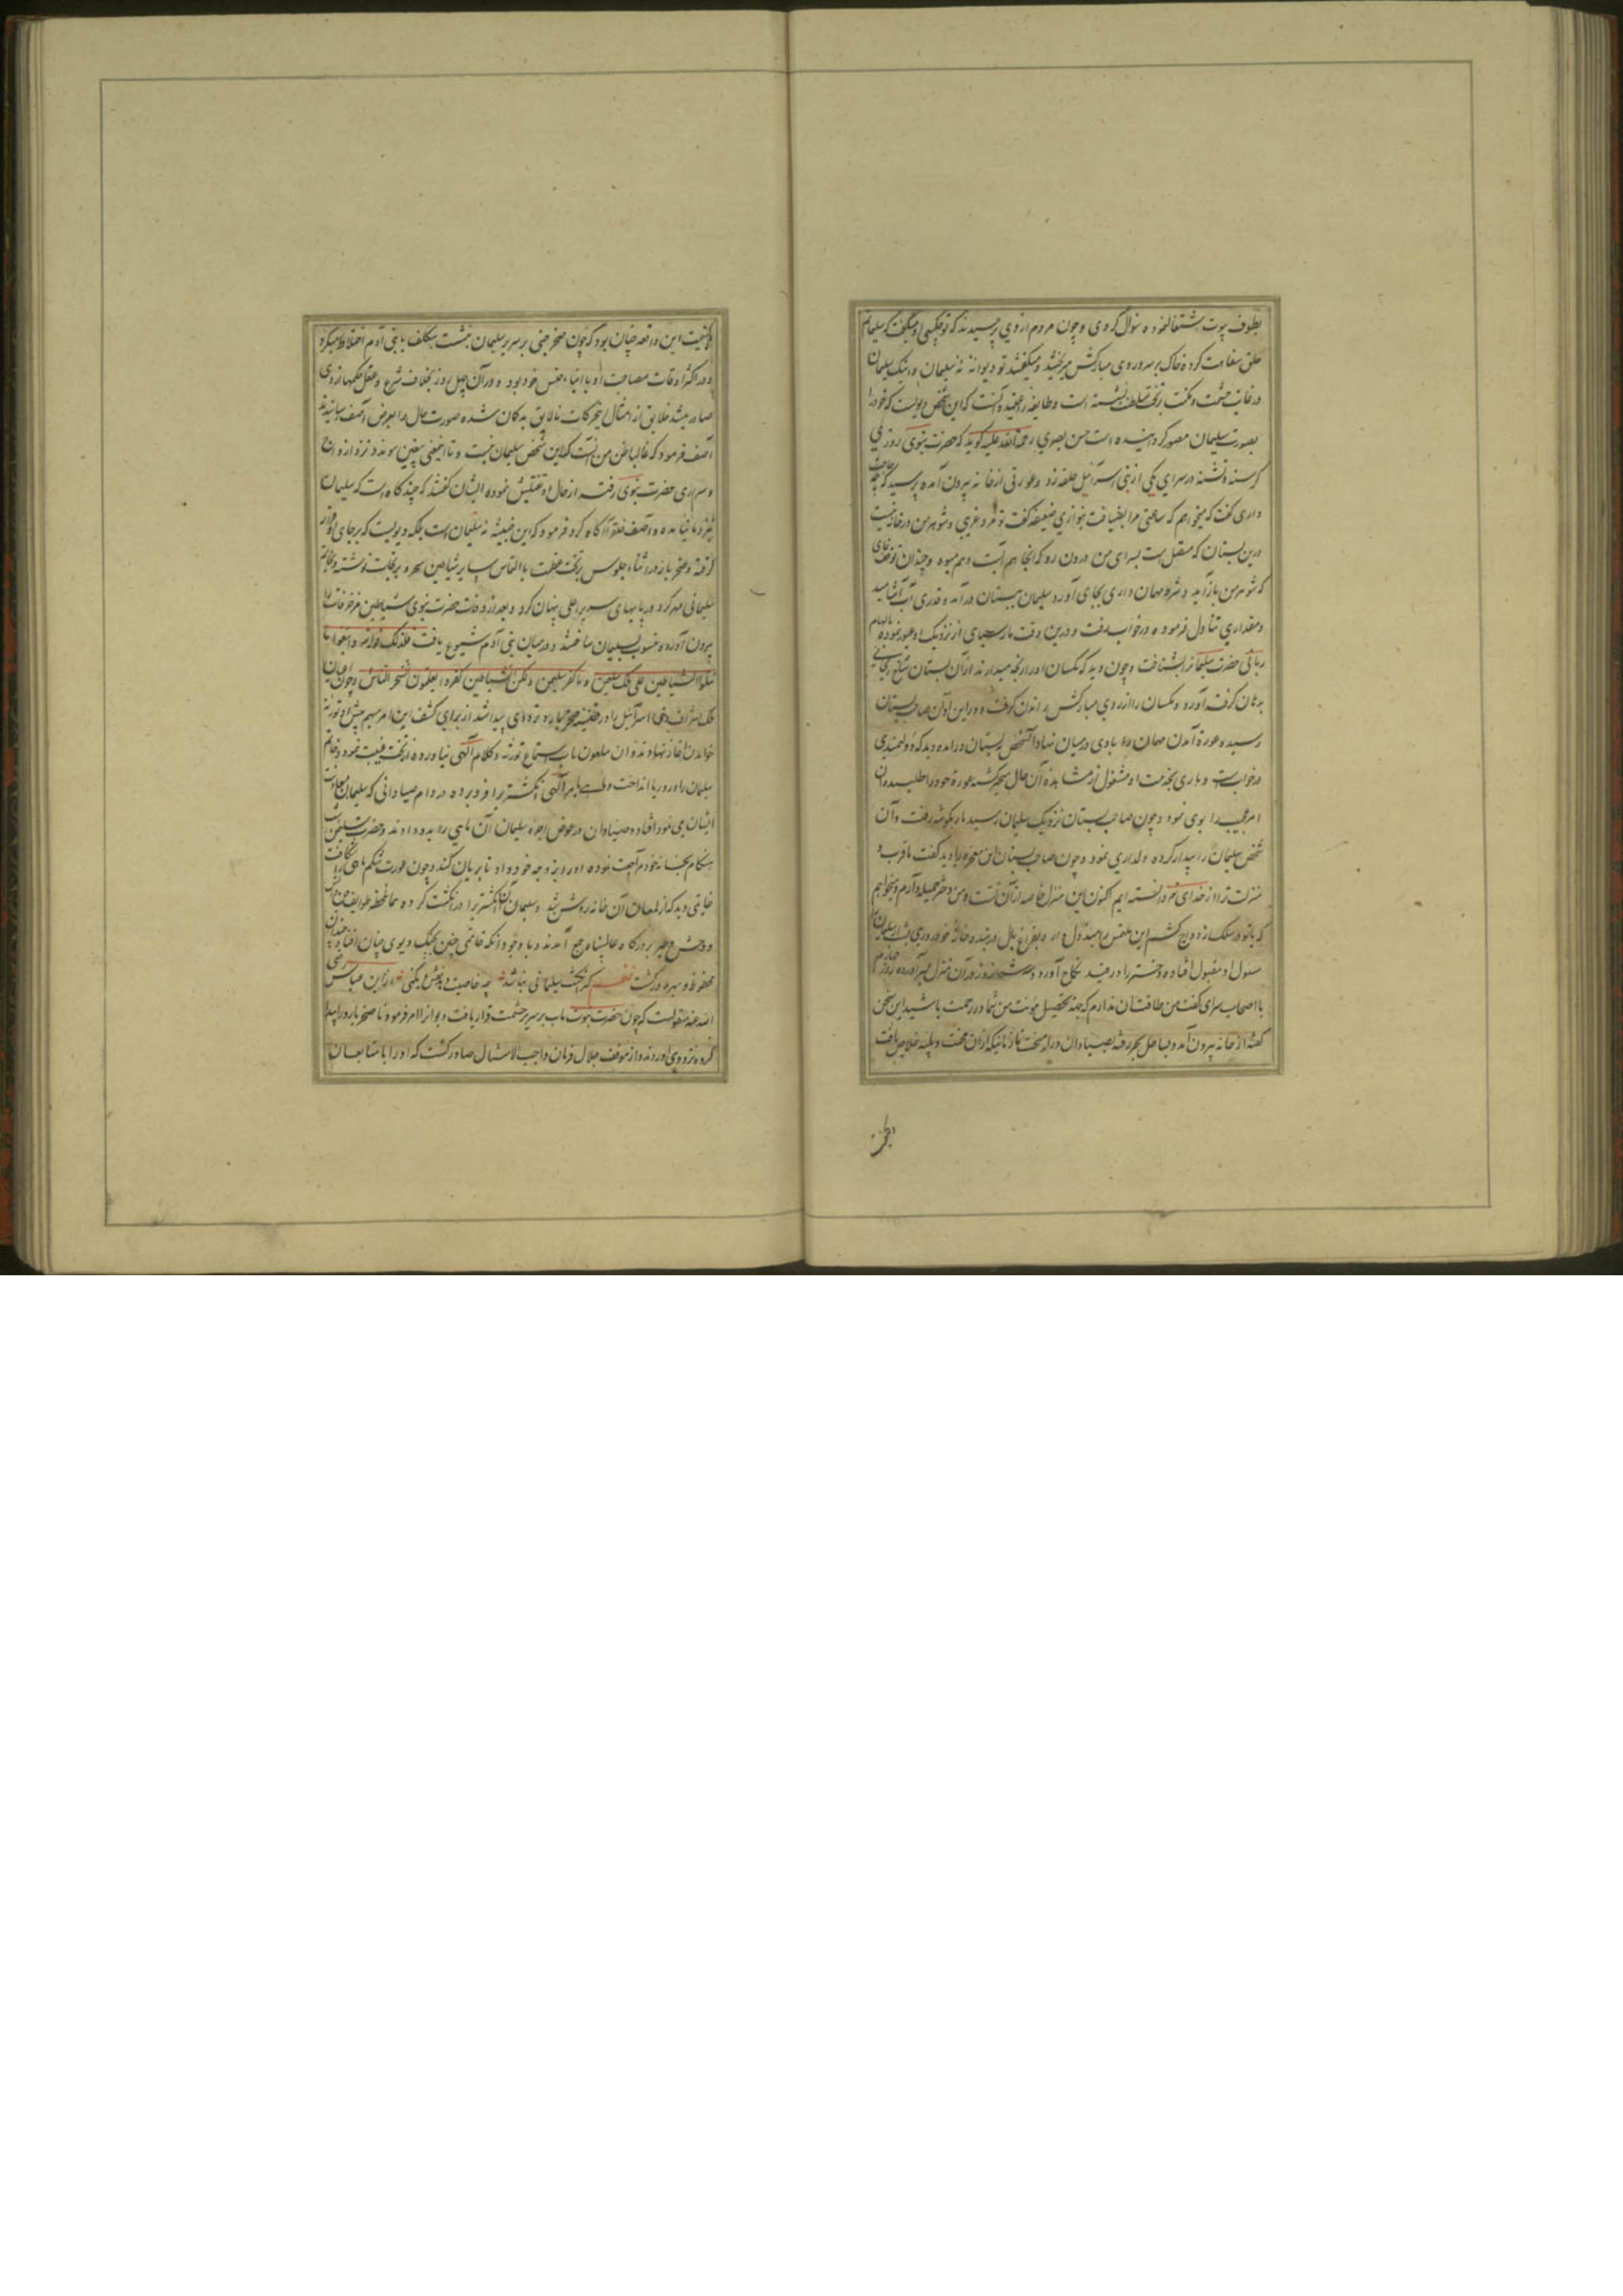 بطوف بیوت اشتغال نموده سؤال کردی و چون مردم از وی پرسیدند که تو چه کسی او میگفت که سلیمانم
خلق سفاهت کرده خاک بر سر و روی مبارکش میریختند و میگفتند تو دیوانهٔ نه سلیمان و اینک سلیمان
در غایت حشمت و مکنت بر تخت سلطنت نشسته است و طایفه را عقیده آنست که این شخص دیویست که خود را
بصورت سلیمان مصور گردانیده است حسن بصری رحمة الله علیه گوید که حضرت نبوی روزی
گرسنه و تشنه در سرای یکی از بنی اسرائیل حلقه زد و عورتی از خانه بیرون آمده پرسید که چه حاجت
داری گفت که میخواهم که ساعتی مرا بضیافت بنوازی ضعیفه گفت تو مرد غریبی و شوهر من در خانه نیست
درین بستان که متصل است بسرای من درون رو که آنجا هم آبست و هم میوه و چندان توقف نمای
که شوهر من باز آید و شرط مهمان داری بجای آورد سلیمان ببستان در آمد و قدری آب آشامید
و مقداری تناول فرموده در خواب رفت و درین وقت مار سیاهی از نزدیک او عبور نموده بالهام
ربانی حضرت سلیمانرا بشناخت و چون دید که مگسان او را رنجه میدارند از آن بستان شاخ ریحانی
بدهان گرفت آورده و مگسان را از روی مبارکش راندن گرفت و در این اوان صاحب بستان
رسیده عورة آمدن مهمان را با وی در میان نهاد آن شخص ببستان در آمده دید که
در خوابست و ماری بخدمت او مشغول از مشاهدهٔ آن حال متحیر گشته عورة خود را طلبیده آن
امر عجیب را بوی نمود و چون صاحب بستان نزدیک سلیمان رسید مار بگوشهٔ رفت و آن
شخص سلیمان را بیدار کرده دلداری نمود و چون صاحب بستان این معجزه را دید گفت ما قرب و
منزلت ترا از خدای خود دانسته ایم اکنون این منزل خاصه از آن تست و من دختر جمیله دارم و میخواهم
که با تو در سلک ازدواج کشم این ملتمس را مبذول دار و بفراغ بال در بنده خانهٔ خود روزی بشب رسان سلیمان
سؤل او مقبول افتاده دختر را در قید نکاح آورد و سه شبانه روز در آن منزل بسر آورده روز چهارم
با اصحاب سرای گفت من طاقت آن ندارم که جهة تحصیل مؤنت من شما در زحمت باشید این سخن
گفته از خانه بیرون آمد و بساحل بحر رفته بصیادان در آمیخت تا زمانیکه از آن محنت و بلیه خلاص یافت
و کیفیت این واقعه چنان بود که چون صخر جنی بر سریر سلیمان بنشست بتکلف با بنی آدم اختلاط میکرد
و در اکثر اوقات مصاحبت او با ابناء جنس خود بود و در آن چهل روز بخلاف شرع و عقل حکمها از وی
صادر میشد خلایق از امثال این حرکات نالایق بدگمان شده صورت حال را بعرض آصف رسانیدند
آصف فرمود که غالب ظن من آنست که این شخص سلیمان نیست و تا این معنی بیقین پیوندد نزد ازواج
و سراری حضرت نبوی رفته از حال او تفتیش نموده ایشان گفتند که چند گاه است که سلیمان
نزد ما نیامده و آصف خلق را آگاه کرد و فرمود که این خبیثه نه سلیمان است بلکه دیویست که بر جای او قرار
گرفته و صخر باز در اثناء جلوس بر تخت عظمت بالتماس سایر شیاطین سحر و نیرنجات نوشته و بخاتم
سلیمانی مهر کرد و در پایهای سریر اعلی پنهان کرد و بعد از وفات حضرت نبوی شیاطین مزخرفات را
بیرون آورده منسوب بسلیمان ساختند و در میان بنی آدم شیوع یافت فلذلک قوله تعالی و اتبعوا ما
تتلوا الشیاطین علی ملک سلیمن و ما کفر سلیمن و لکن الشیاطین کفروا یعلمون الناس السحر و چون اعیان
ملک و اشراف بنی اسرائیل را در قضیه صخر تردد پیدا شد از برای کشف این امر مبهم پیش او توریة
خواندن آغاز نهادند و آن ملعون تاب استماع توریة و کلام الهی نیاورده از تخت غیبت نمود و خاتم
سلیمان را در دریا انداخت و ماهی بامر الهی انگشتر را فرو برده در دام صیادانی که سلیمان معاونت
ایشان می نمود افتاد و صیادان در عوض اجره سلیمان آن ماهی را بدو دادند و حضرت سلیمن
هنگام شب بخانه خود مراجعت نموده او را بزوجه خود داد تا بریان کند و چون عورت شکم ماهی بشکافت
خاتمی دید که از لمعان آن خانه روشن شد و سلیمان آن انگشتر را در انگشت کرده همان لحظه طوایف جن و انس
و وحش و طیر بر درگاه عالمپناه جمع آمدند و با وجود آنکه خاتمی چنین بچنگ دیوی چنان افتاده بود
محفوظ و بهره ور گشت نظم گر انگشت سلیمانی نباشد چه خاصیت دهد نقش نگینی و از ابن عباس رضی
الله عنه منقولست که چون حضرت نبوت مآب بر سریر حشمت قرار یافت دیوانرا امر فرمود تا صخر مارد را پیدا
کرده نزد وی آوردند و از موقف جلال فرمان واجب الامتثال صادر گشت که او را با متابعان